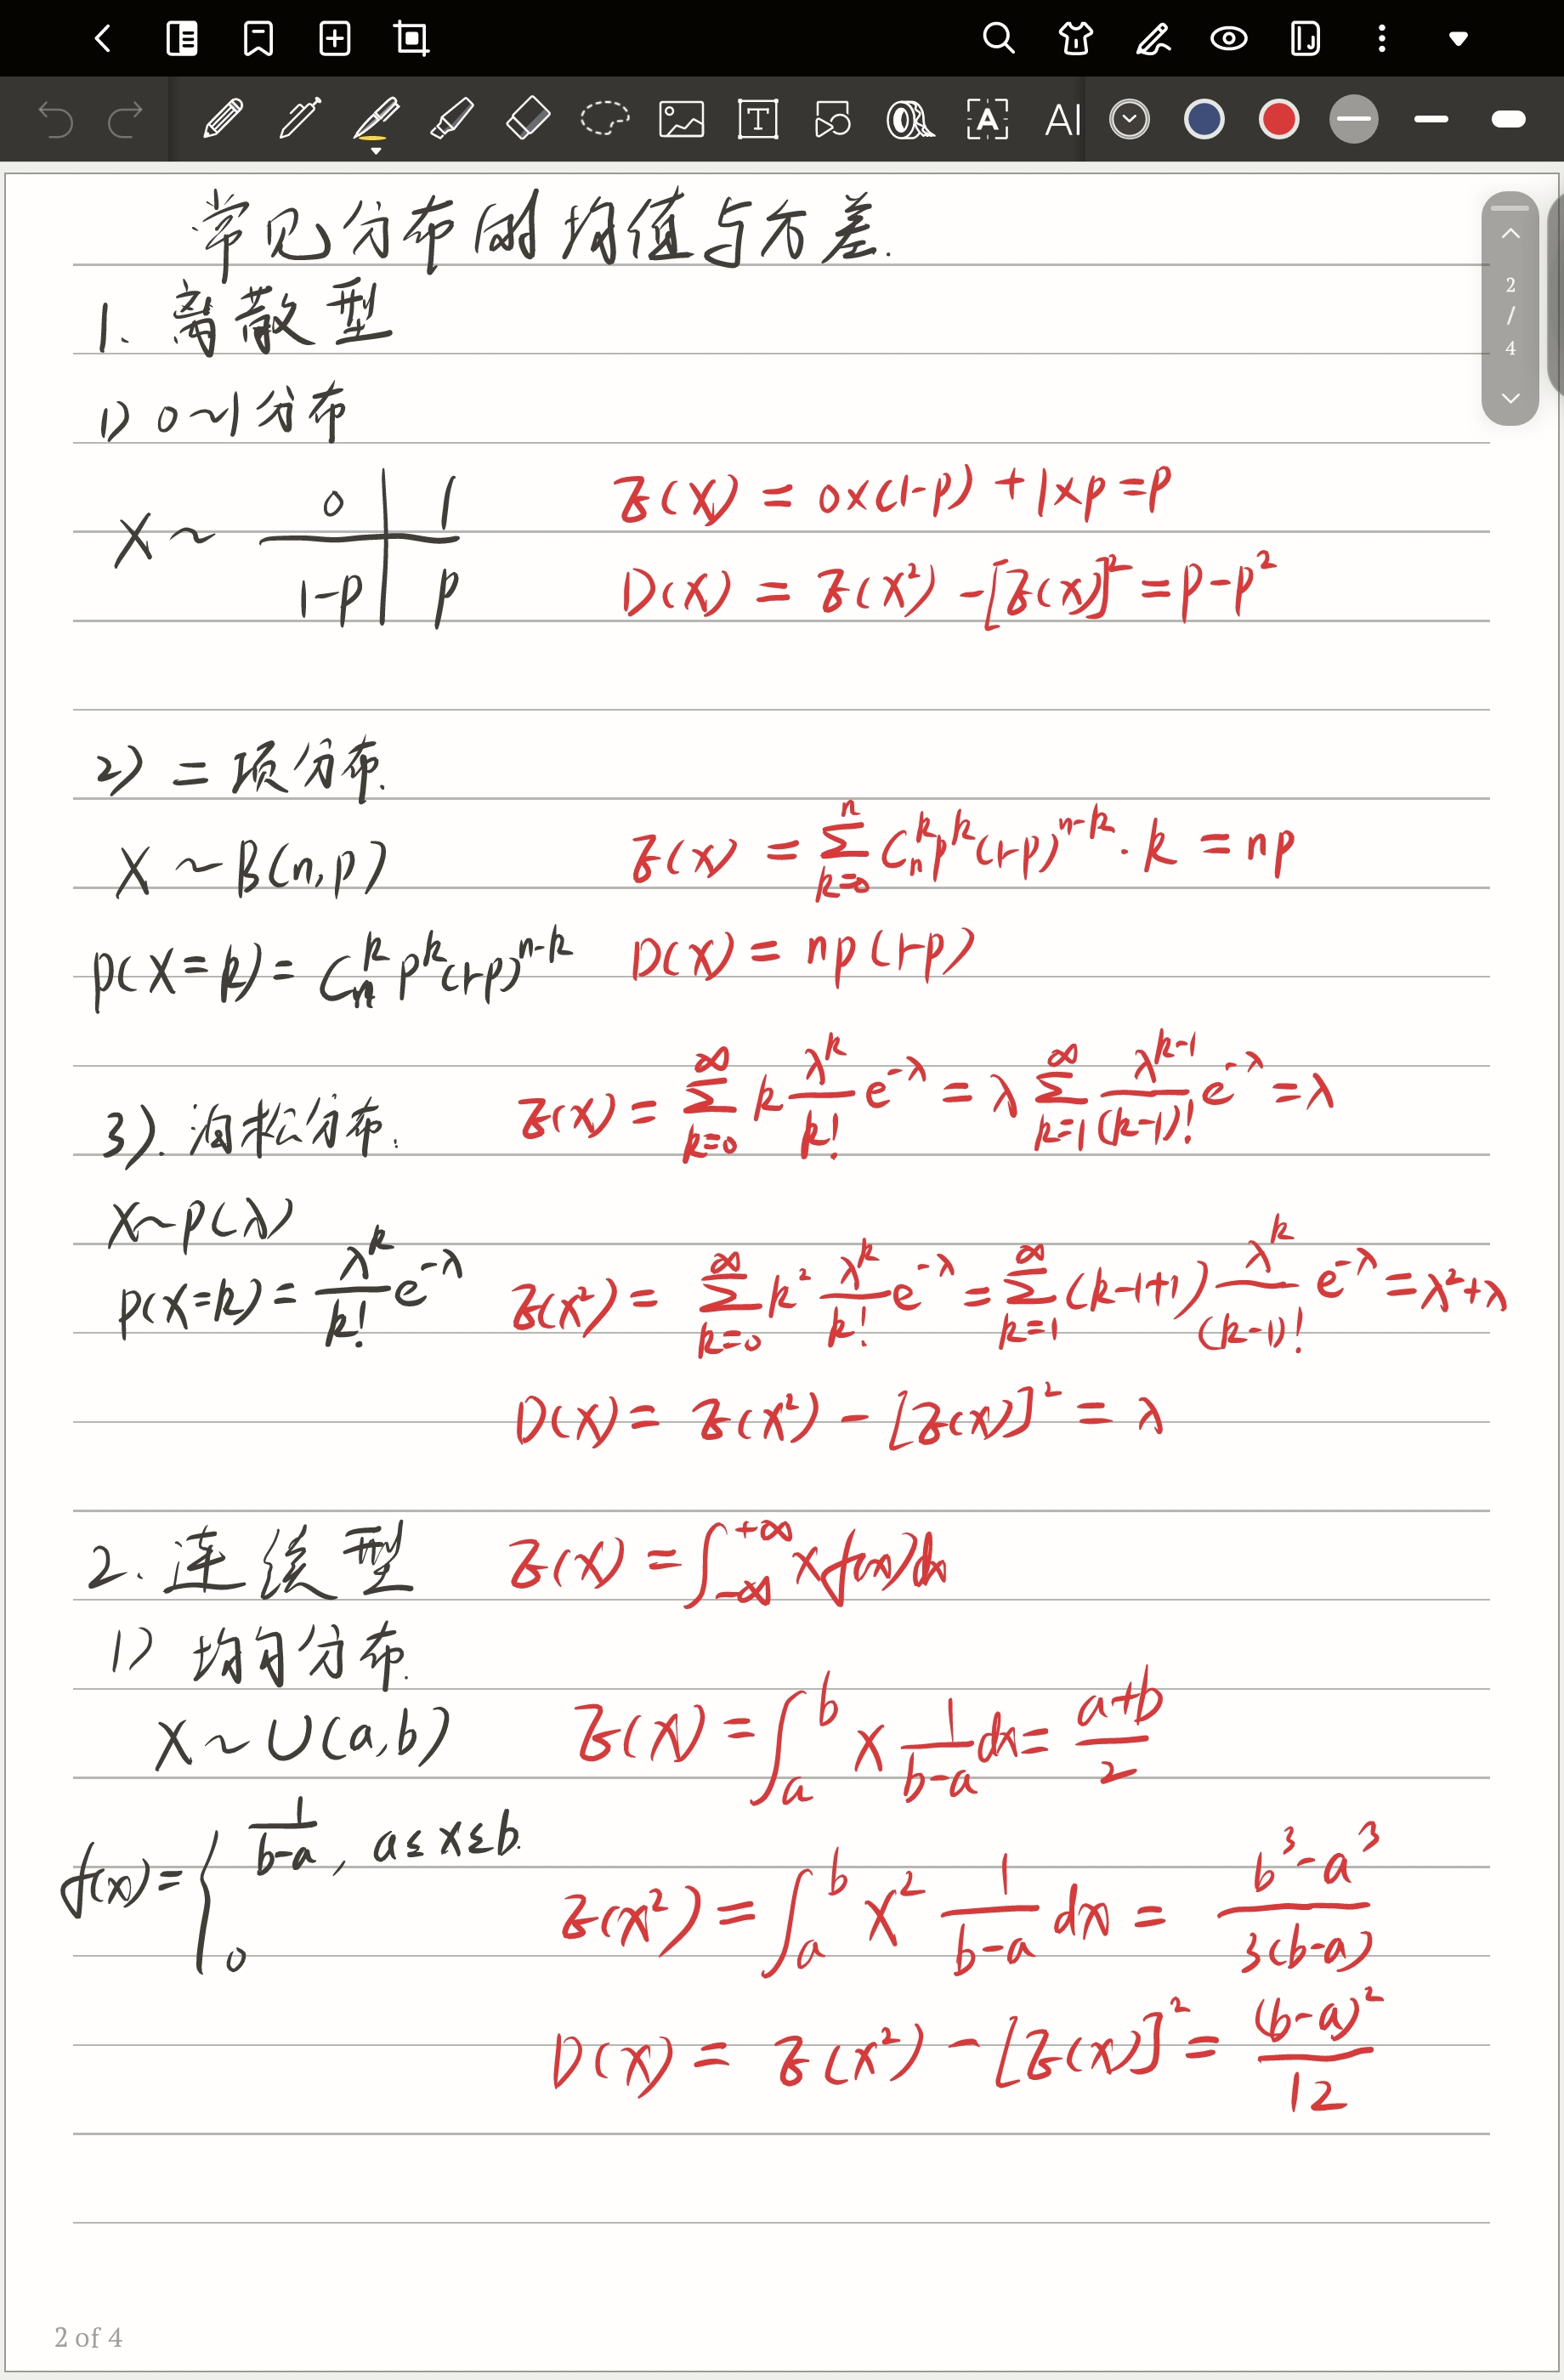 常见分布的均值与方差.
1. 离散型
1) 0~1分布
X ~ 0 1
1-p p
E(X) = 0×(1-p) + 1×p = p
D(X) = E(X²) - [E(X)]² = p - p²
2) 二项分布.
X ~ B(n,p)
E(X) = ∑_{k=0}^{n} C_n^k p^k (1-p)^{n-k} · k = np
P(X=k) = C_n^k p^k (1-p)^{n-k}
D(X) = np(1-p)
3). 泊松分布.
E(X) = ∑_{k=0}^{∞} k λ^k/k! e^{-λ} = λ ∑_{k=1}^{∞} λ^{k-1}/(k-1)! e^{-λ} = λ
X ~ P(λ)
P(X=k) = λ^k/k! e^{-λ}
E(X²) = ∑_{k=0}^{∞} k² λ^k/k! e^{-λ} = ∑_{k=1}^{∞} (k-1+1) λ^k/(k-1)! e^{-λ} = λ²+λ
D(X) = E(X²) - [E(X)]² = λ
2. 连续型
E(X) = ∫_{-∞}^{+∞} x f(x) dx
1) 均匀分布.
X ~ U(a,b)
E(X) = ∫_a^b x 1/(b-a) dx = (a+b)/2
f(x) = { 1/(b-a), a≤x≤b.
0
E(X²) = ∫_a^b x² 1/(b-a) dx = (b³-a³)/3(b-a)
D(X) = E(X²) - [E(X)]² = (b-a)²/12
2 / 4
2 of 4